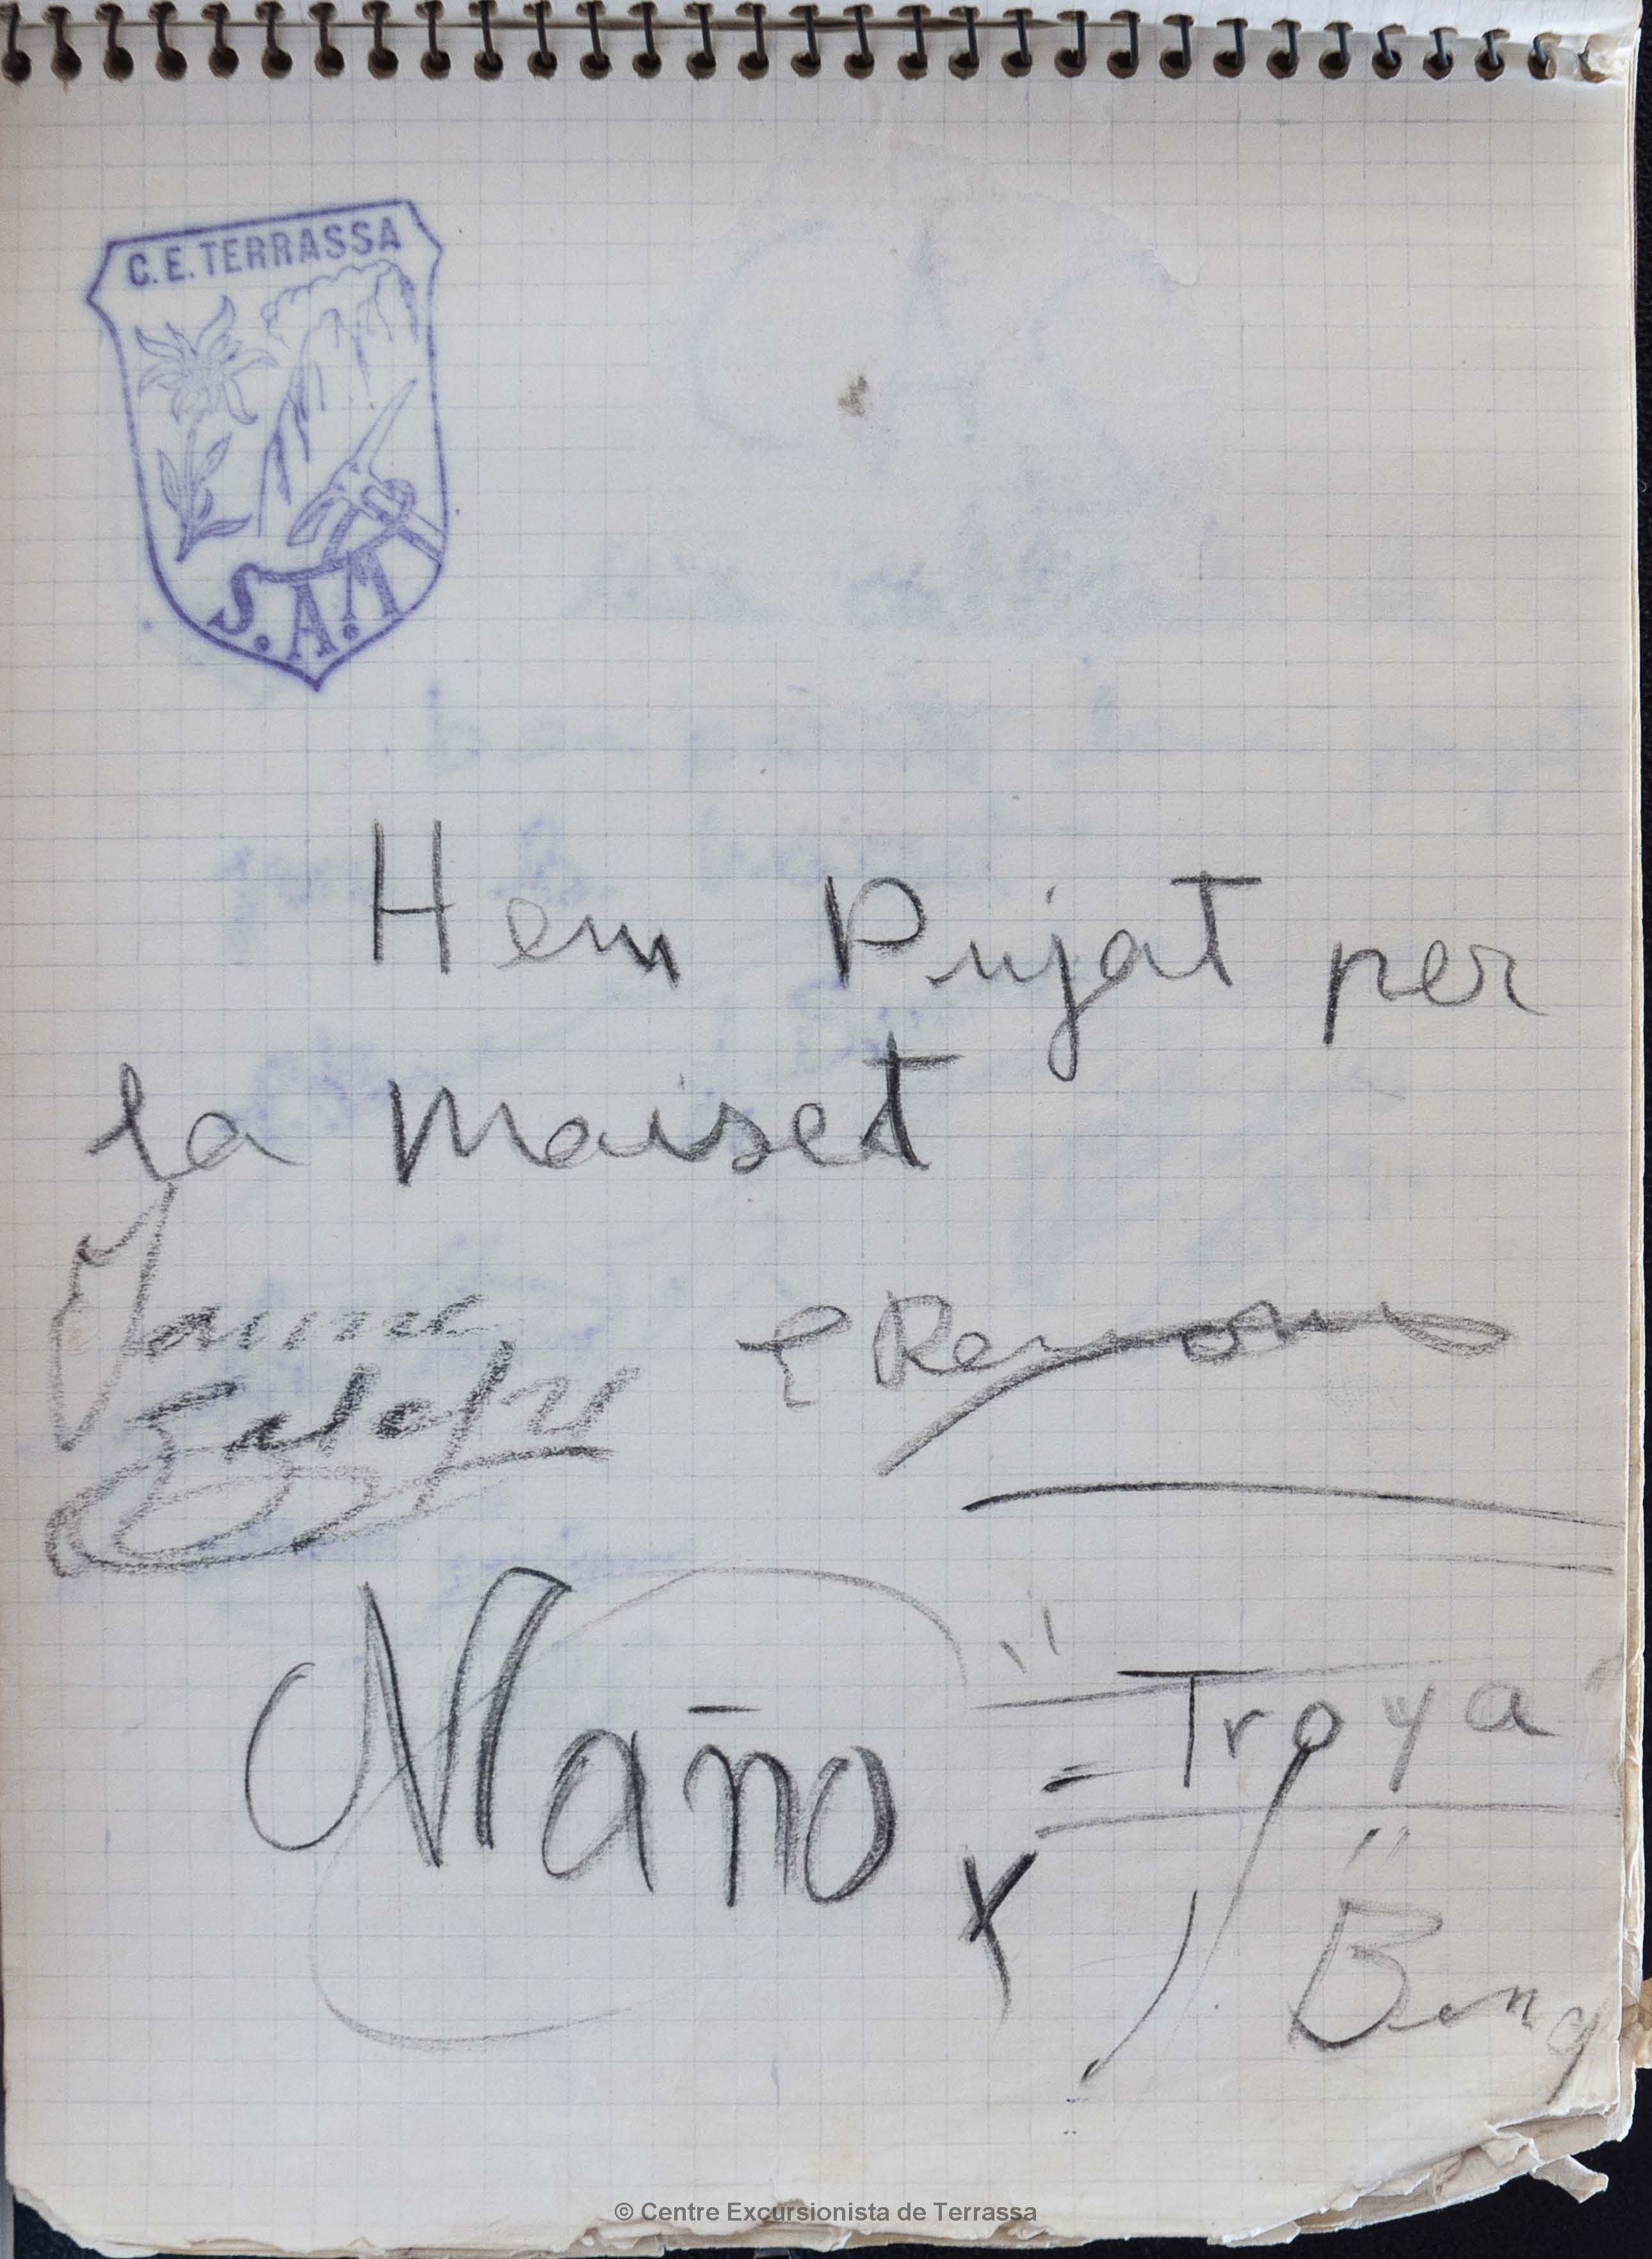 C.E. TERRASSA
S.A.M
Hem Pujat per
la Maiset
Jaume
Naño
"Troya"
y
© Centre Excursionista de Terrassa